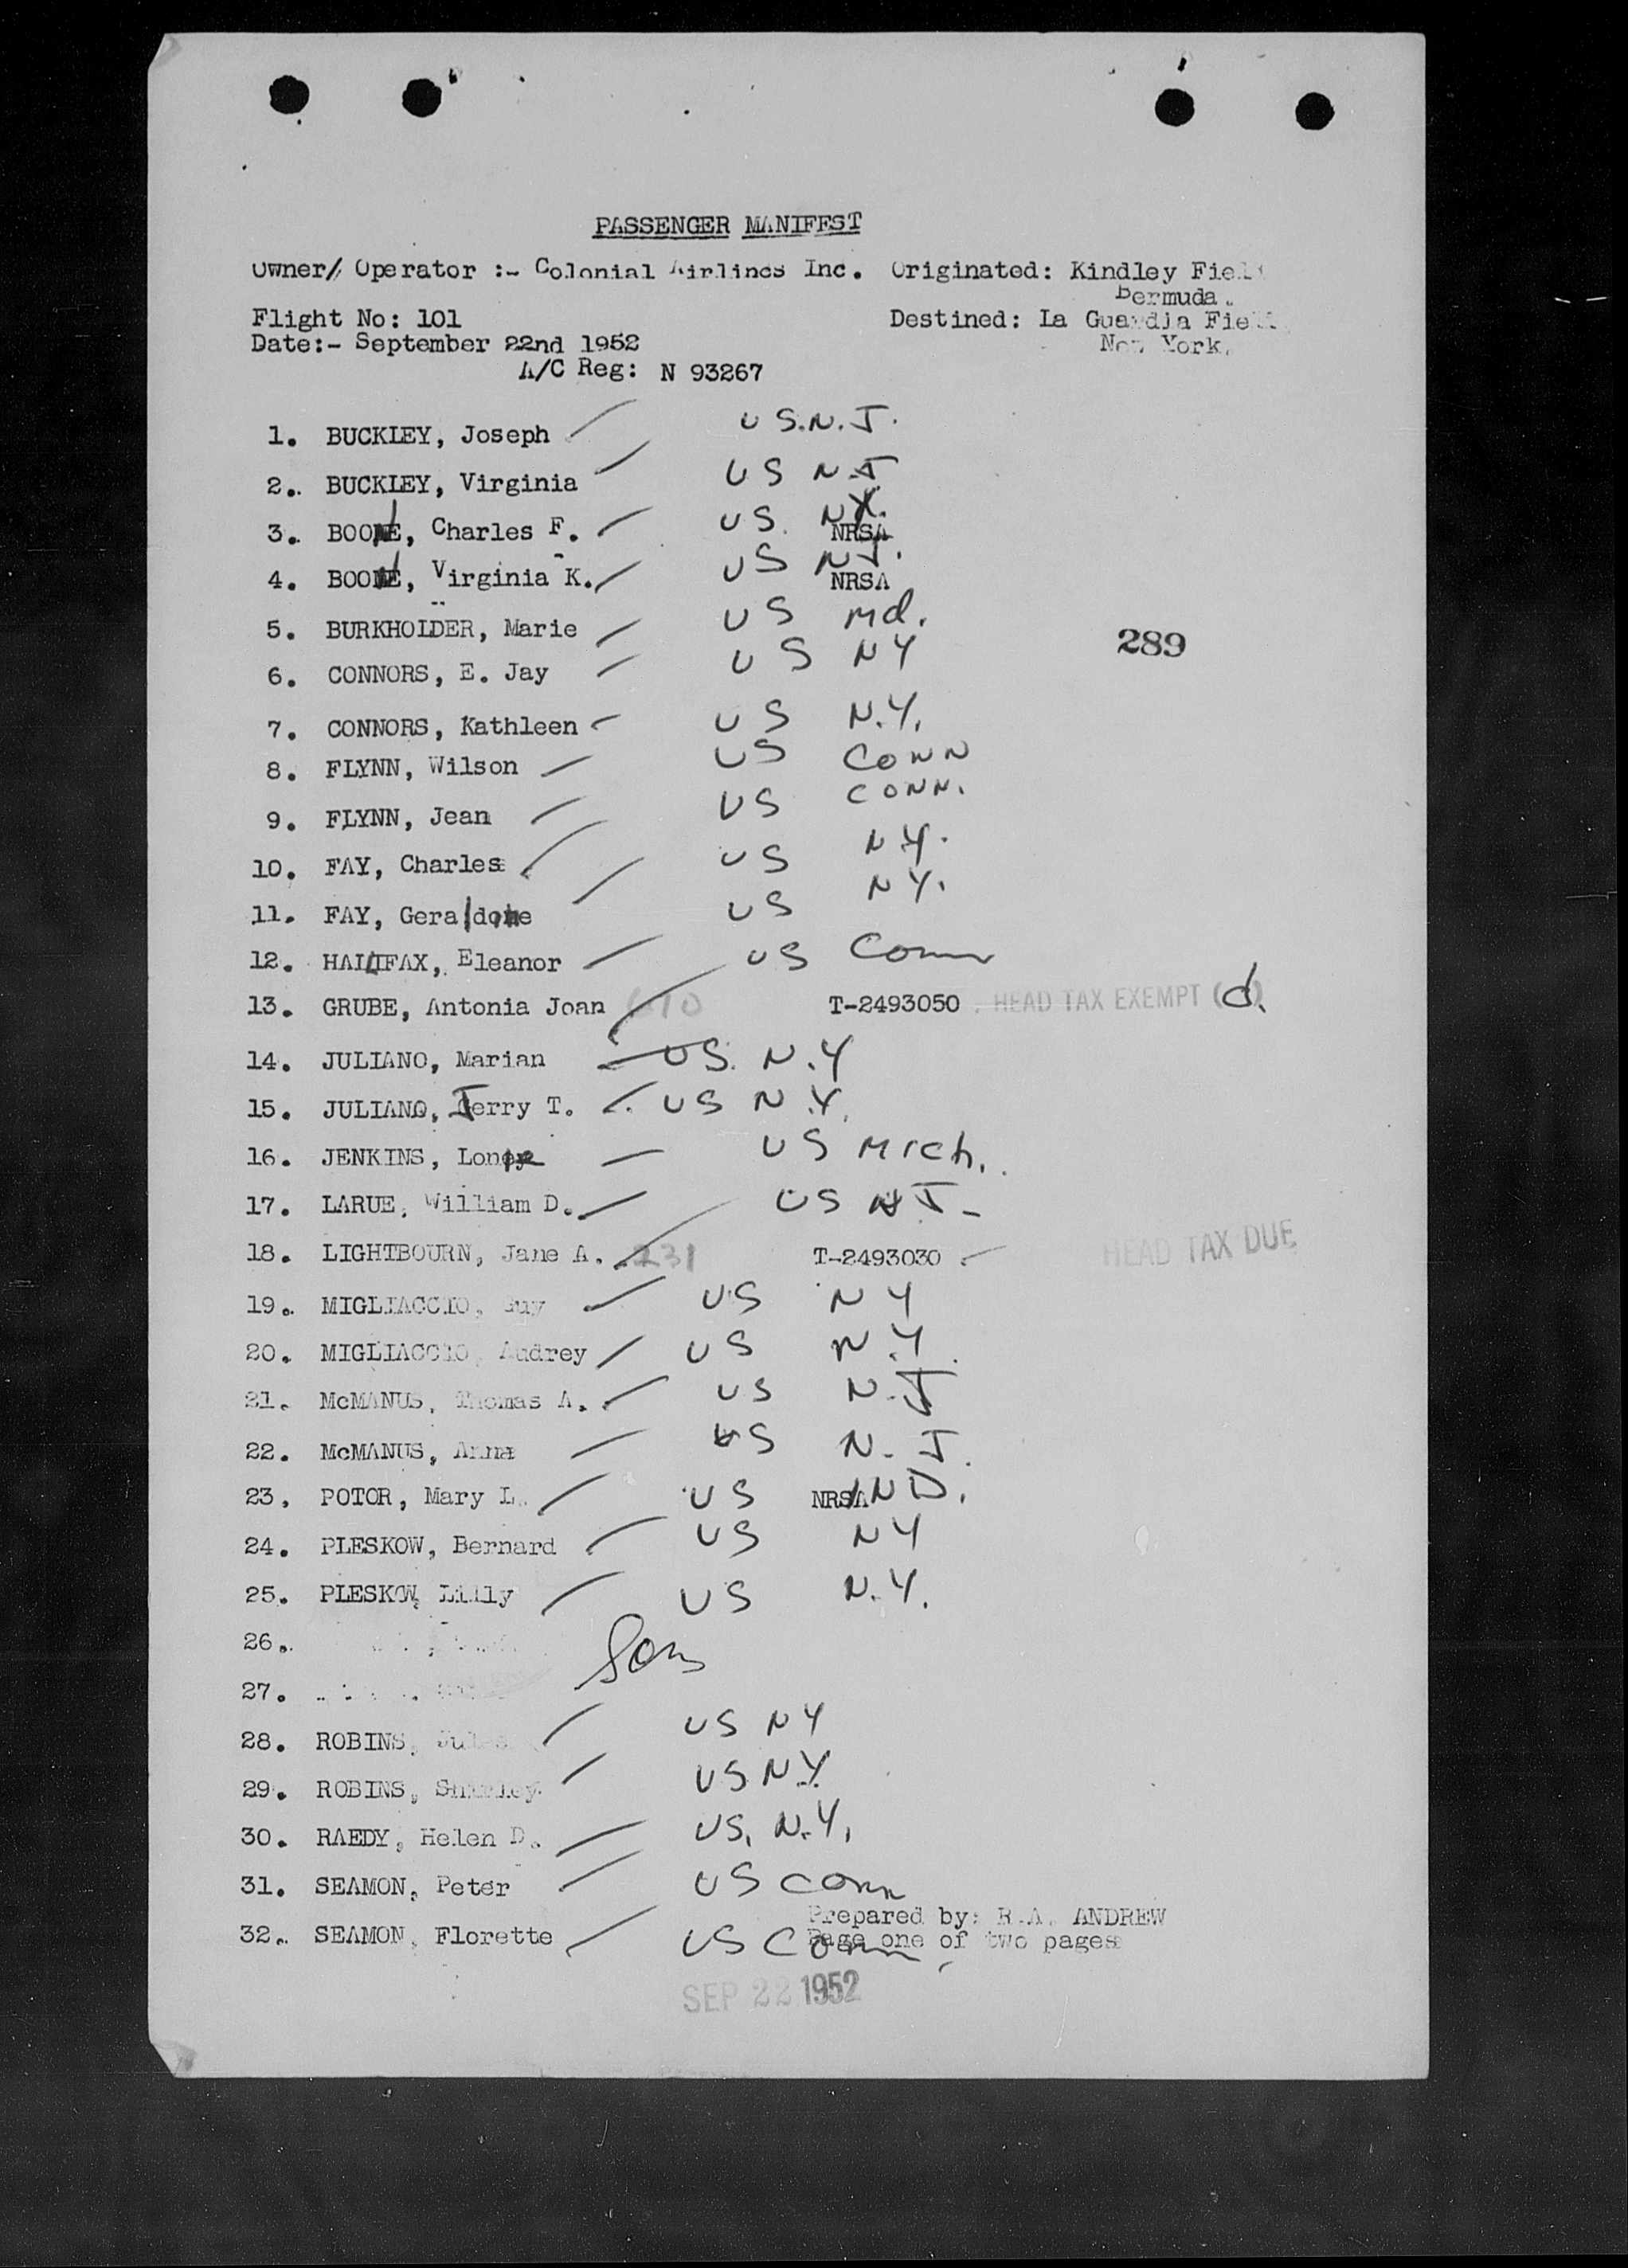 PASSENGER MANIFEST
Owner/ Operator :- Colonial Airlines Inc. Originated: Kindley Field
Bermuda.
Flight No: 101 Destined: La Guardia Field
Date:- September 22nd 1952 New York.
A/C Reg: N 93267
1. BUCKLEY, Joseph U S. N. J.
2. BUCKLEY, Virginia US N.J.
3. Charles F. US NRSA
4. Virginia K. US N.J. NRSA
5. BURKHOLDER, Marie US Md.
289
6. CONNORS, E. Jay US NY
7. CONNORS, Kathleen US N.Y.
8. FLYNN, Wilson US CONN
9. FLYNN, Jean US CONN.
10. FAY, Charles US N.Y.
11. FAY, US NY.
12. HALIFAX, Eleanor US Conn
13. GRUBE, Antonia Joan T-2493050 HEAD TAX EXEMPT (d.
14. JULIANO, Marian US. N.Y
15. JULIANO, Jerry T. US N.Y.
16. JENKINS, US Mich.
17. LARUE, William D. US NJ-
18. LIGHTBOURN, Jane A. 231 T-2493030 HEAD TAX DUE
19. MIGLIACCIO, Guy US NY
20. MIGLIACCIO, Audrey US N.Y.
21. McMANUS, Thomas A. US N.J
22. McMANUS, Anna US N. J.
23. POTOR, Mary L. US NRSA IND.
24. PLESKOW, Bernard US NY
25. PLESKOW, Lilly US N.Y.
26.
27.
28. ROBINS, Jules US NY
29. ROBINS, Shirley US NY.
30. RAEDY, Helen D. US. N.Y.
31. SEAMON, Peter US Conn
Prepared by: R.A. ANDREW
32. SEAMON, Florette US Conn Page one of two pages
SEP 22 1952